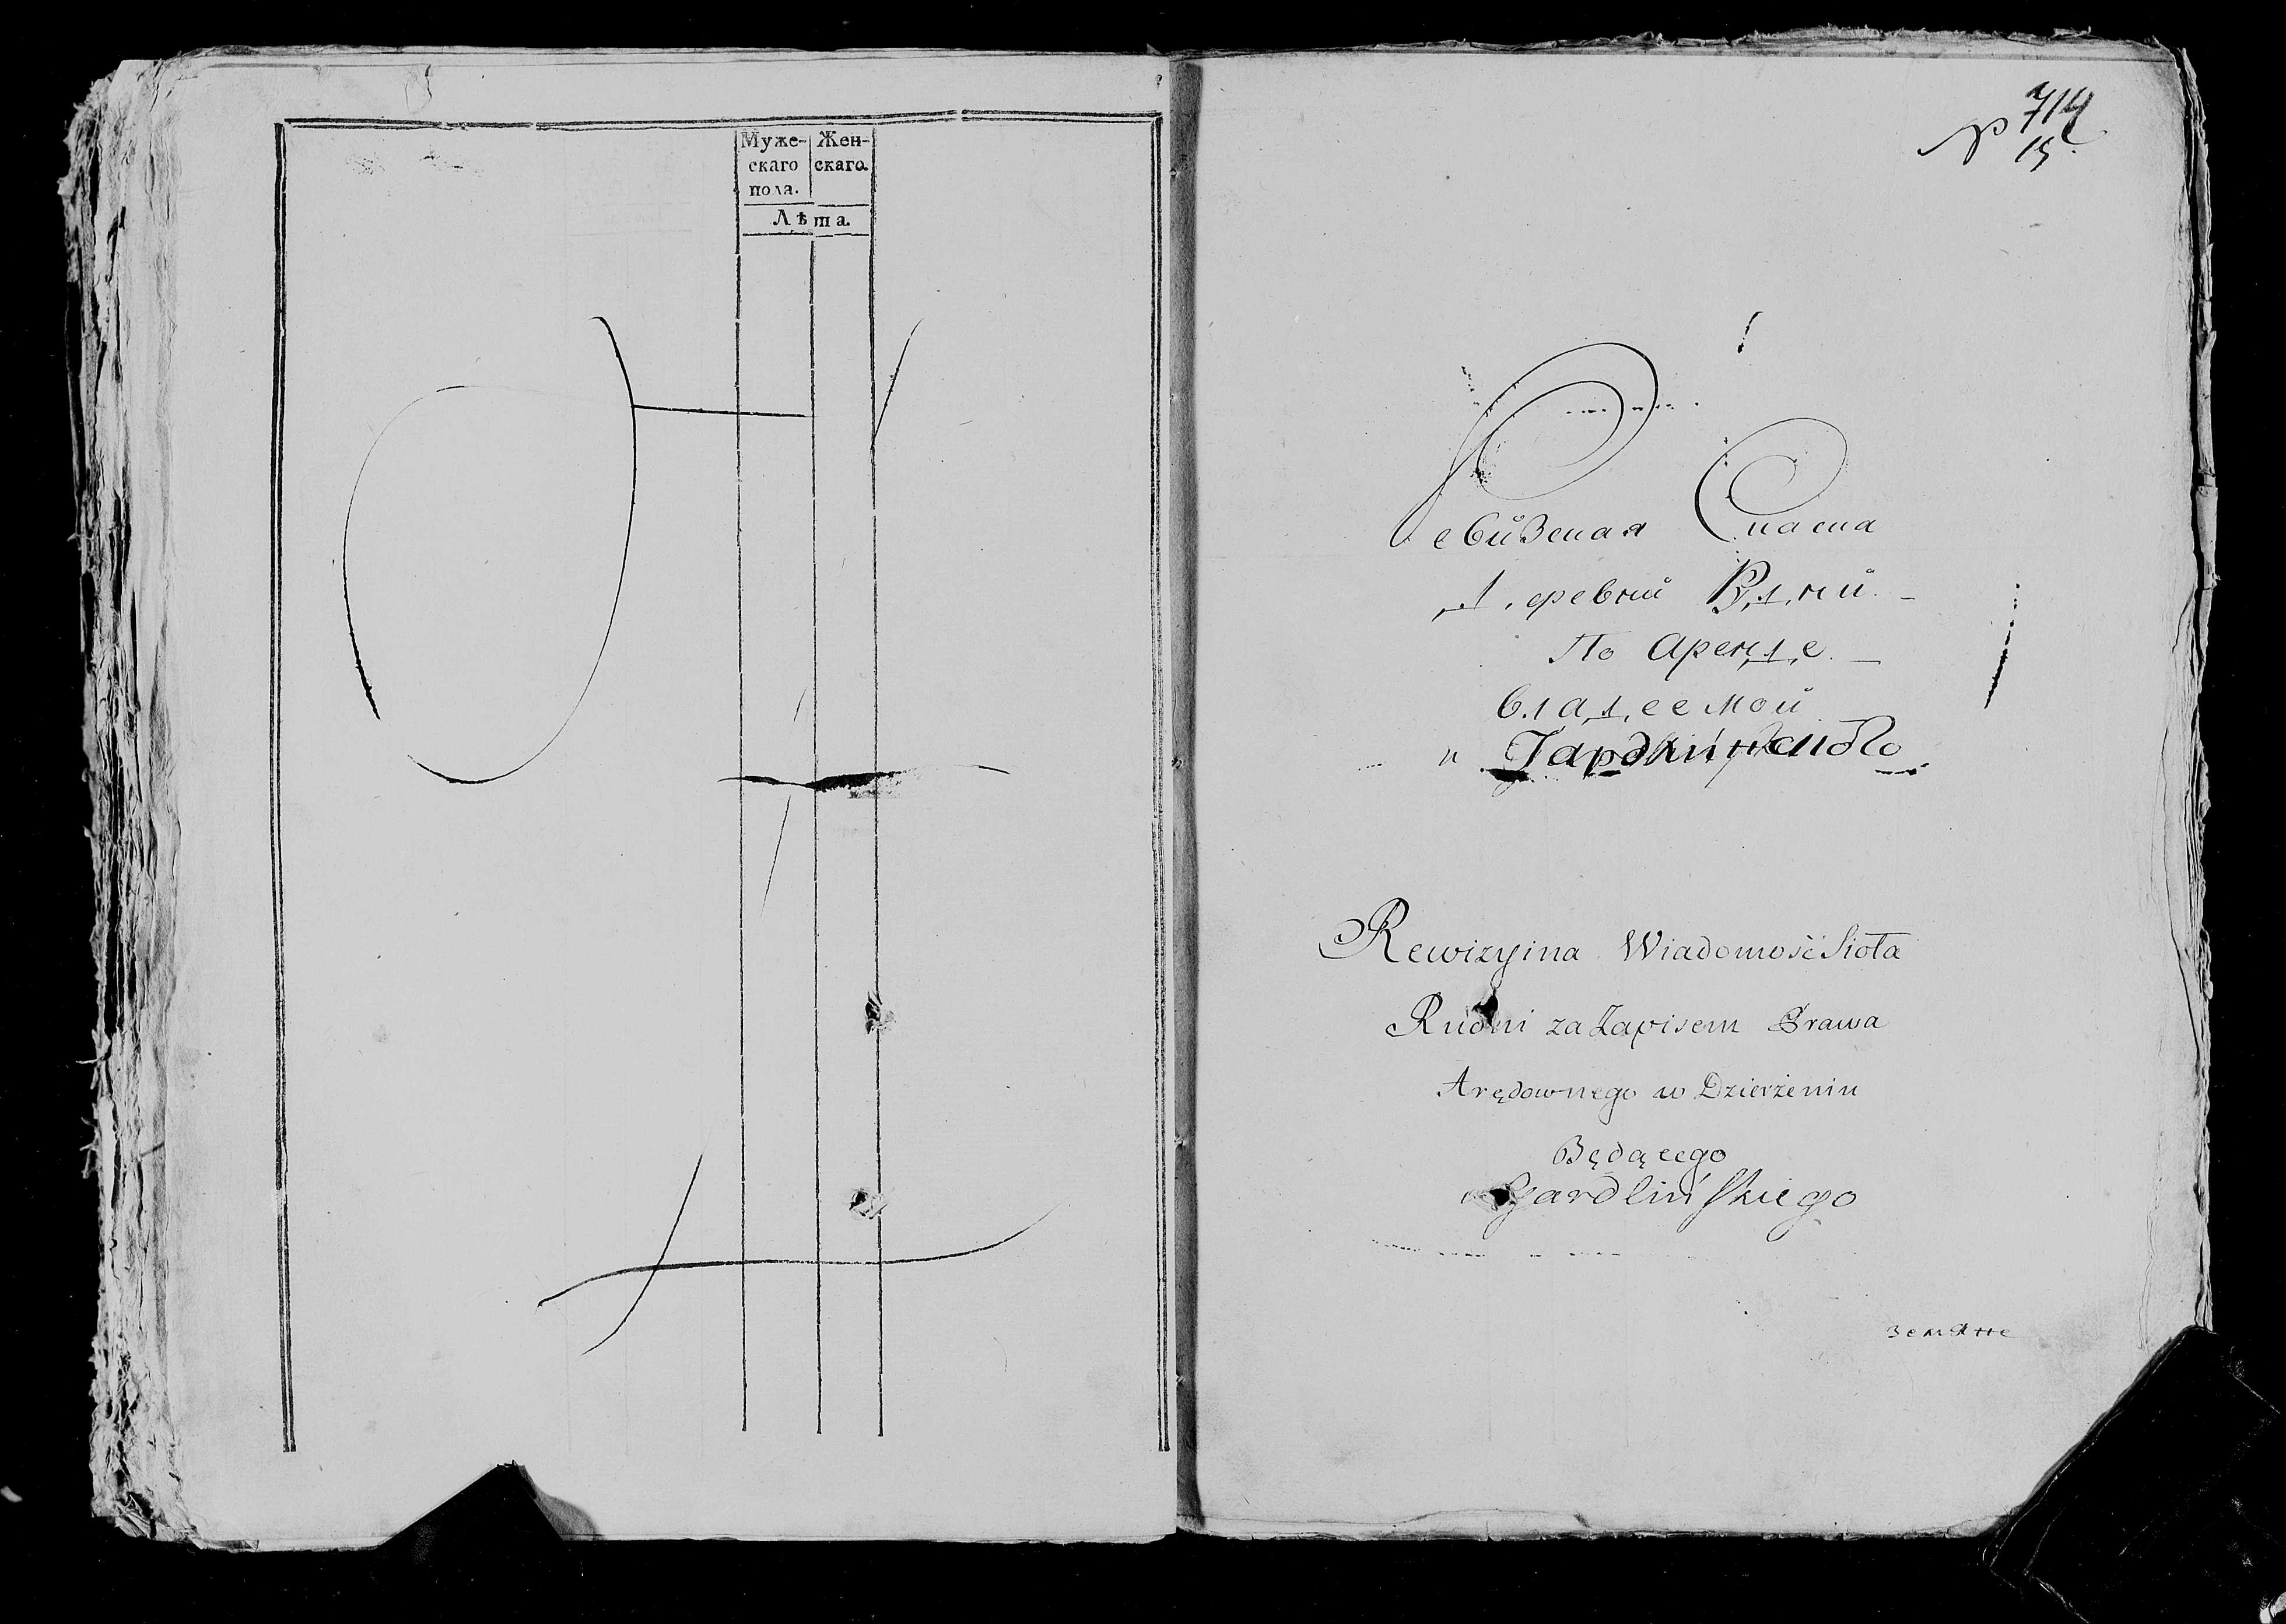 Муже-
скаго
пола.
Жен-
скаго.
Лѣта.
№ 714
15.
Ревизская Сказка
Деревни Рудни
По Аренде
владеемой
Rewizyina Wiadomość Sioła
Rudni za Zapisem Prawa
Arędownego w Dzierżeniu
Będącego
Gardlińskiego
земяне